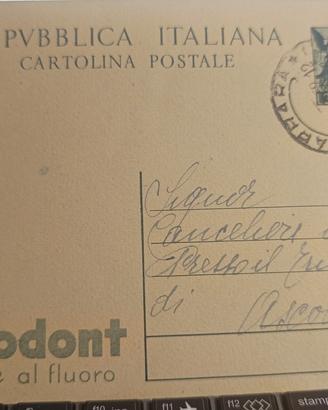 PVBBLICA ITALIANA
CARTOLINA POSTALE
Signor
Cancelliere
Presso il
di Asco
odont
e al fluoro
f10 f11 f12 stamp